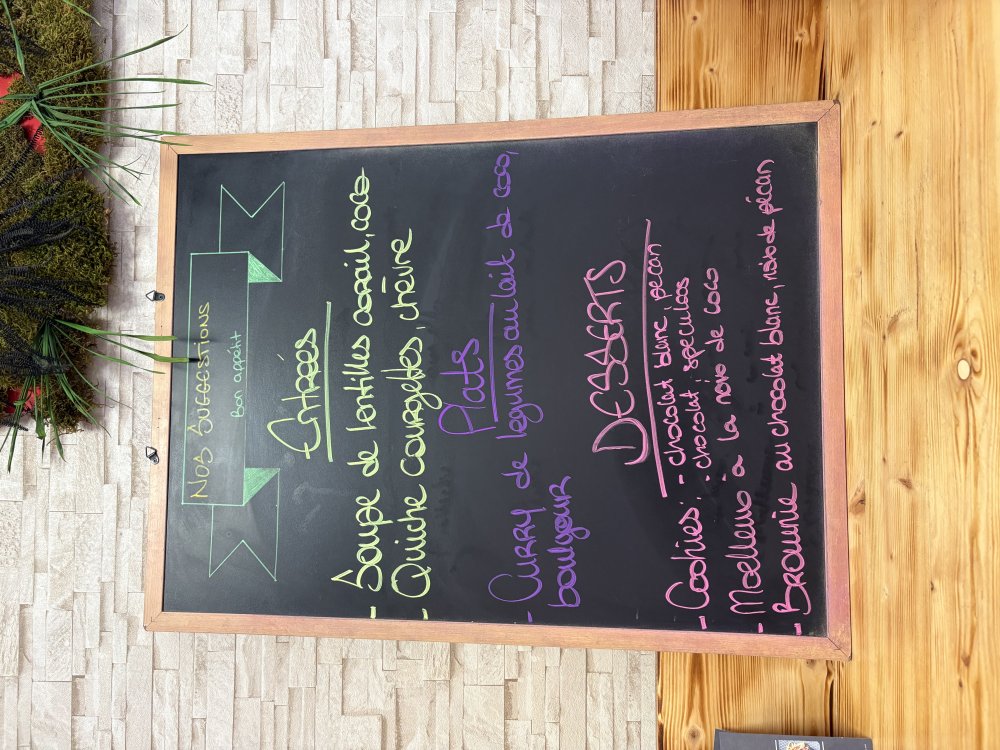 NOS SUGGESTIONS
Bon appétit
Entrées
- Soupe de lentilles corail, coco
- Quiche courgettes, chèvre
Plats
- CURRY de légumes au lait de coco,
boulgour
DESSERTS
- Cookies : - chocolat blanc, pecan
- chocolat, speculoos
- Moelleux à la noix de coco
- BROWNIE au chocolat blanc, noix de pécan